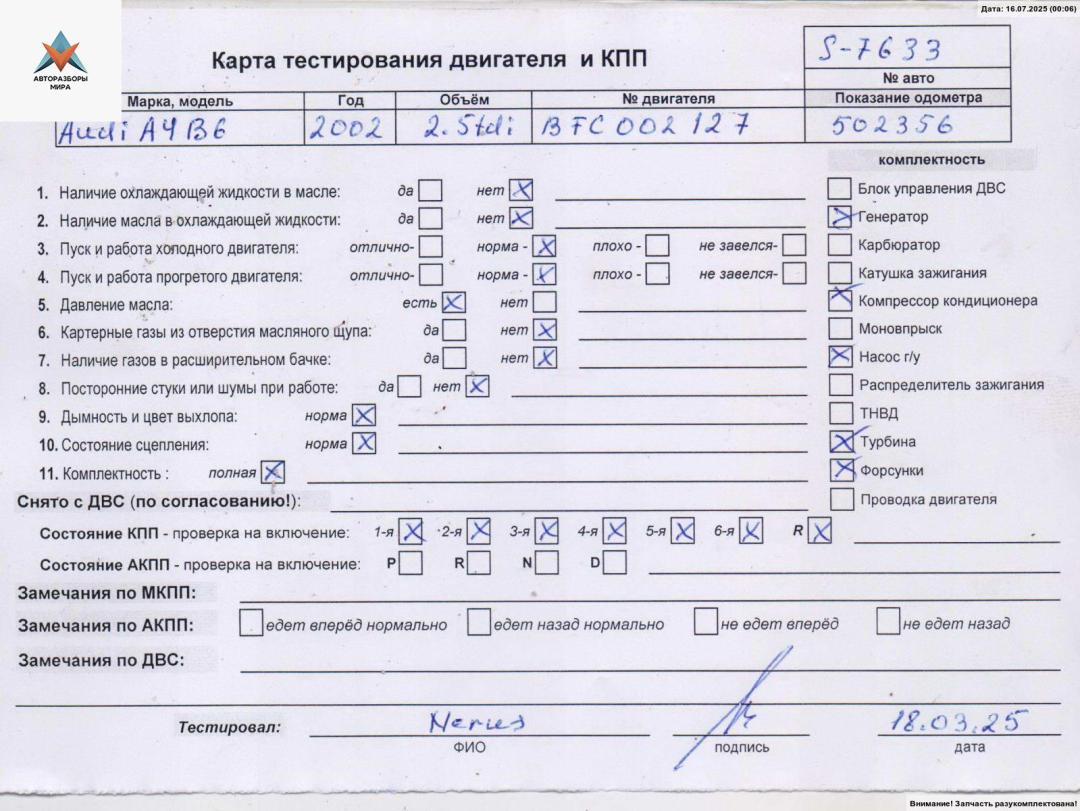 Дата: 16.07.2025 (00:06)
АВТОРАЗБОРЫ
МИРА
Карта тестирования двигателя и КПП
S-7633
№ авто
Марка, модель Год Объём № двигателя Показание одометра
Audi A4 B6 2002 2.5tdi BFC 002 127 502356
комплектность
1. Наличие охлаждающей жидкости в масле: да нет Блок управления ДВС
2. Наличие масла в охлаждающей жидкости: да нет Генератор
3. Пуск и работа холодного двигателя: отлично- норма - плохо - не завелся- Карбюратор
4. Пуск и работа прогретого двигателя: отлично- норма - плохо - не завелся- Катушка зажигания
5. Давление масла: есть нет Компрессор кондиционера
6. Картерные газы из отверстия масляного щупа: да нет Моновпрыск
7. Наличие газов в расширительном бачке: да нет Насос г/у
8. Посторонние стуки или шумы при работе: да нет Распределитель зажигания
9. Дымность и цвет выхлопа: норма ТНВД
10. Состояние сцепления: норма Турбина
11. Комплектность : полная Форсунки
Снято с ДВС (по согласованию!): Проводка двигателя
Состояние КПП - проверка на включение: 1-я 2-я 3-я 4-я 5-я 6-я R
Состояние АКПП - проверка на включение: P R N D
Замечания по МКПП:
Замечания по АКПП: едет вперёд нормально едет назад нормально не едет вперёд не едет назад
Замечания по ДВС:
Тестировал: 18.03.25
ФИО подпись дата
Внимание! Запчасть разукомплектована!